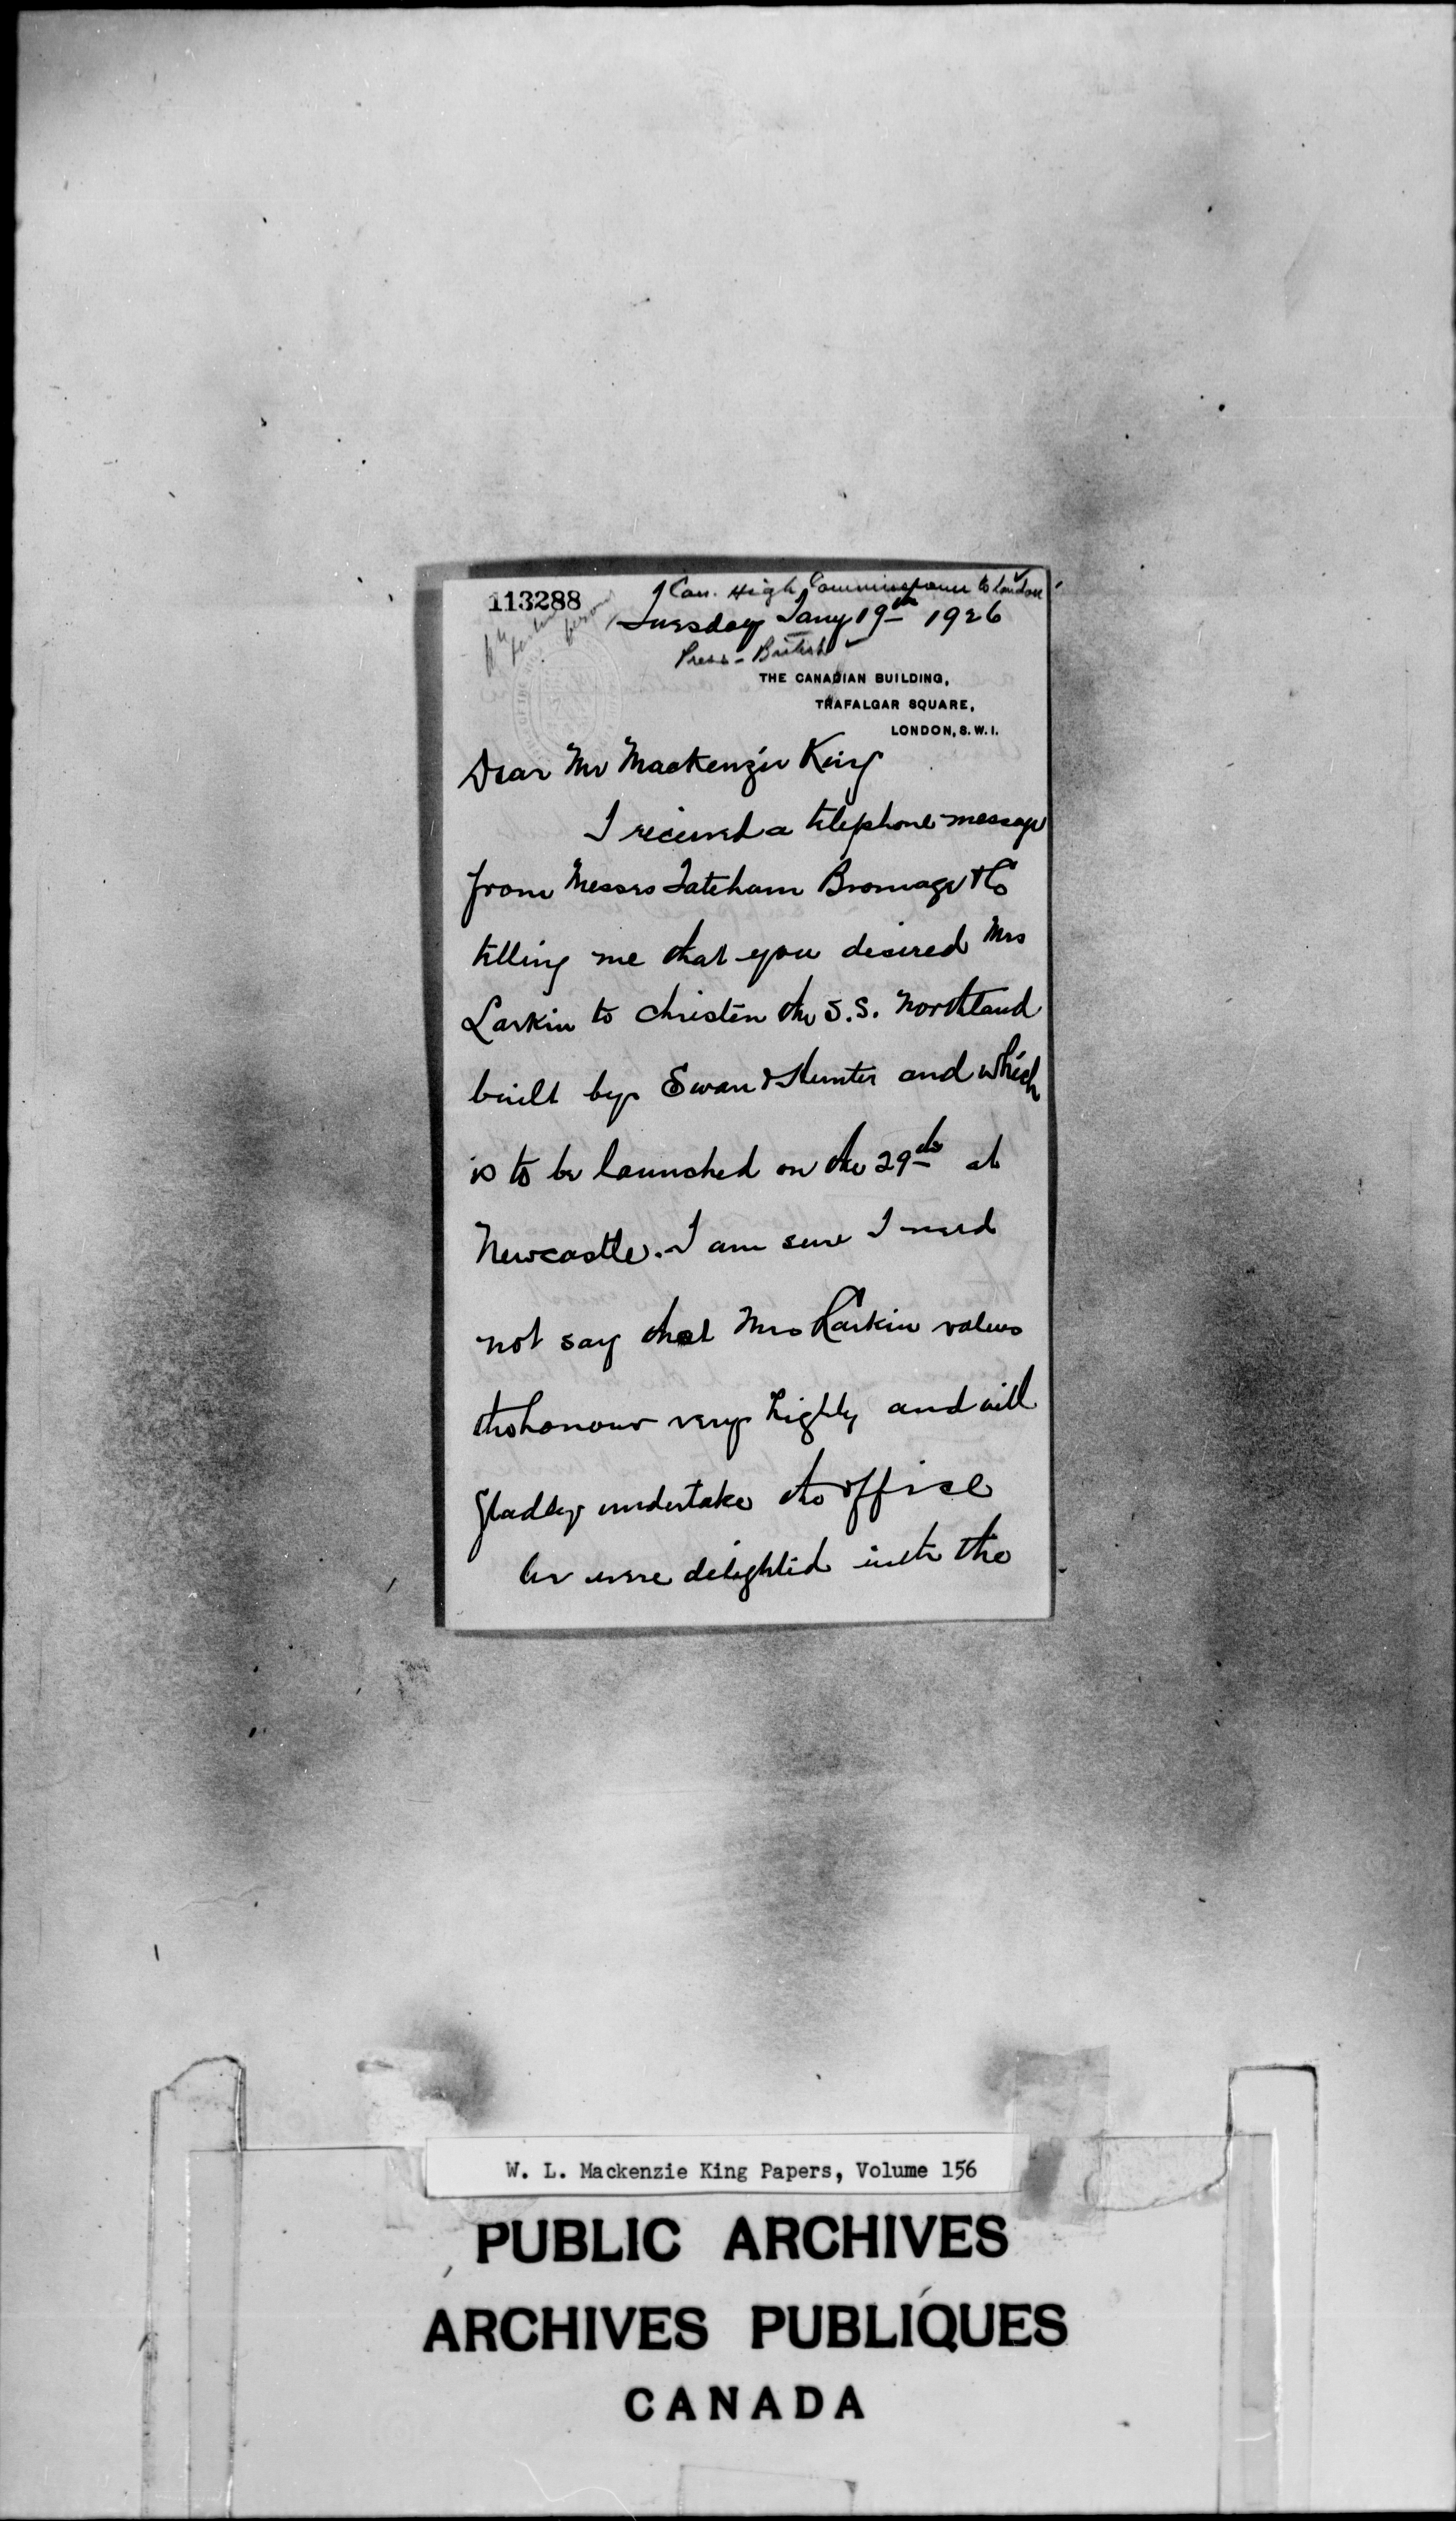 113288
Can. High Commissioner to London
Tuesday Jany 19th 1926
Press - British
THE CANADIAN BUILDING,
TRAFALGAR SQUARE,
LONDON, S.W.1.
Dear Mr Mackenzie King
I received a telephone message
from Messrs Tateham Bromage & Co
telling me that you desired Mrs
Larkin to christen the S.S. Northland
built by Swan & Hunter and which
is to be launched on the 29th at
Newcastle. I am sure I need
not say that Mrs Larkin values
the honour very highly and will
gladly undertake the office
We were delighted with the
W. L. Mackenzie King Papers, Volume 156
PUBLIC ARCHIVES
ARCHIVES PUBLIQUES
CANADA